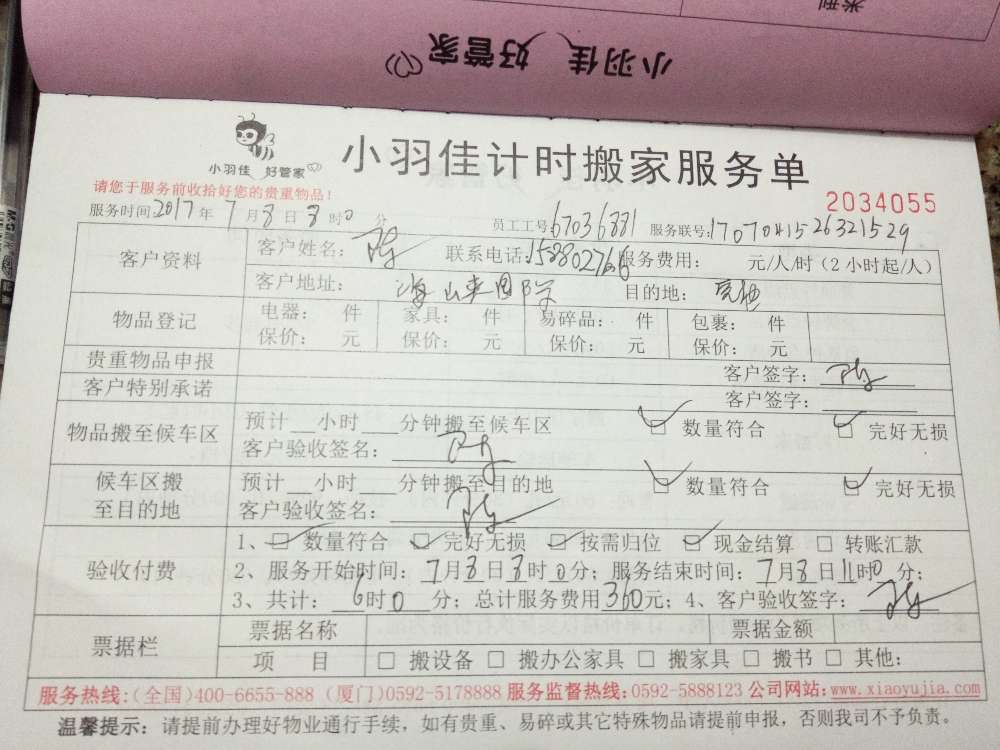 类型
小羽佳 好管家
小羽佳 好管家
小羽佳计时搬家服务单
请您于服务前收拾好您的贵重物品！
2034055
服务时间:2017年7月8日8时0分 员工工号67036881 服务联号:1707041526321529
客户资料 客户姓名： 联系电话: 服务费用： 元/人/时（2小时起/人）
客户地址： 目的地：
物品登记 电器： 件 家具： 件 易碎品： 件 包裹： 件
保价： 元 保价： 元 保价： 元 保价： 元
贵重物品申报 客户签字：
客户特别承诺 客户签字：
物品搬至候车区 预计__小时___分钟搬至候车区 ☑ 数量符合 ☑ 完好无损
客户验收签名：
候车区搬至目的地 预计__小时___分钟搬至目的地 ☑ 数量符合 ☑ 完好无损
客户验收签名：
验收付费 1、☑ 数量符合 ☑ 完好无损 ☑ 按需归位 ☑ 现金结算 □ 转账汇款
2、服务开始时间：7月8日8时0分；服务结束时间：7月8日11时0分；
3、共计：6时0分；总计服务费用360元；4、客户验收签字：
票据栏 票据名称 票据金额
项 目 □ 搬设备 □ 搬办公家具 □ 搬家具 □ 搬书 □ 其他：
服务热线:(全国)400-6655-888 (厦门)0592-5178888 服务监督热线:0592-5888123 公司网站:www.xiaoyujia.com
温馨提示：请提前办理好物业通行手续，如有贵重、易碎或其它特殊物品请提前申报，否则我司不予负责。